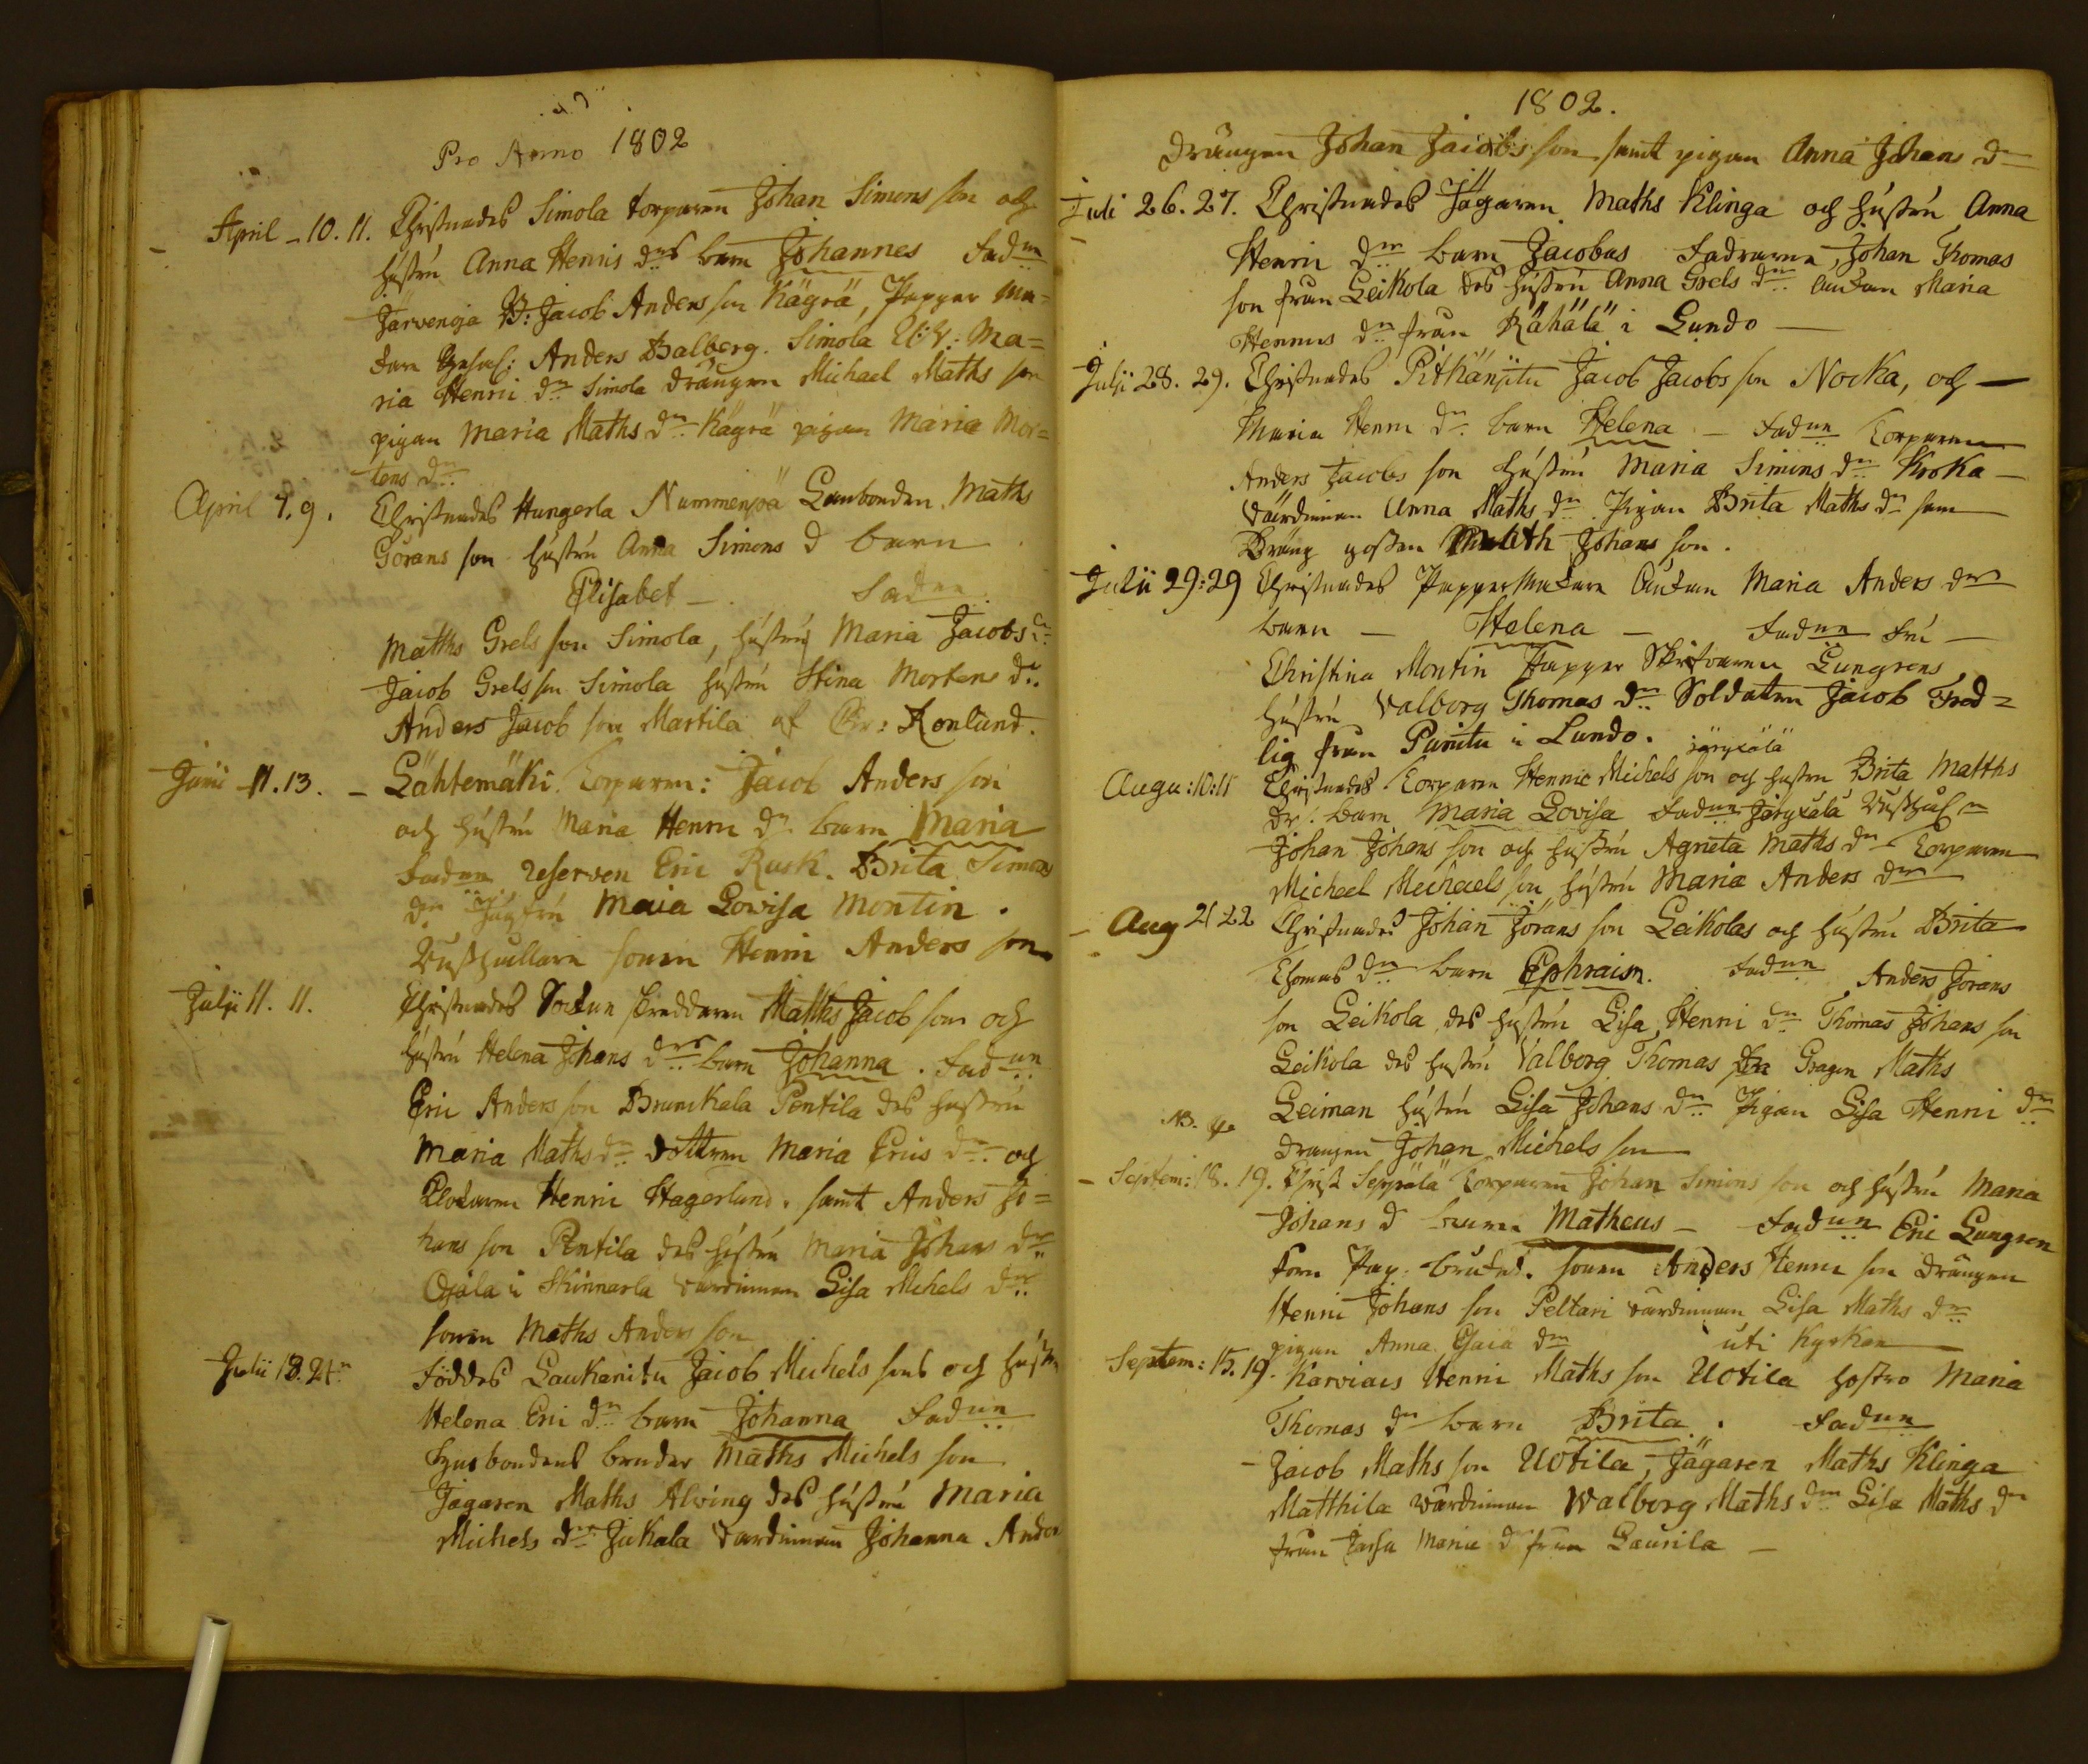 Pro Anno 1802
April 10. 11. Christnades Simola torparen Johan Simons son och
hustru Anna Henris drs barn Johannes Fadun
Järvenoja B: Jacob Anders son Kägrä, Papper ma=
karn Anders Dalberg. Simola El: V: Ma=
ria Henri dr Simola drängen Michael Maths son
pigan Maria Maths dr Kägrä pigan Maria Mor=
tens dr
April 7. 9. Christnades Hungerla Nummenpä Lanbonden Maths
Görans son hustru Anna Simons d barn
Elisabet – Fadun
Maths Grels son Simola, hustru Maria Jacobs dr
Jacob Grels son Simola hustru Stina Mortens dr
Anders Jacob son Martila af Ronlund.
Junii 11. 13. – Lähtemäki Torparen: Jacob Anders son
och hustru Maria Henri dr barn Maria
Fadun reserven Eric Rusk. Brita Simons
dr Jungfru Maia Lovisa Montin.
Rusthullarn sonen Henri Anders son
Julji 11. 11. Christnades Sockun skreddaren Matths Jacob son och
hustru Helena Johans drs barn Johanna. Fadun
Eric Anders son Brunckala Pentila des hustru
Maria Maths dr dottren Maria Erics dr och
Clockaren Henric Hagerlund. samt Anders Jo=
hans son Pentila des hustru Maria Johans dr
Ojala i Skinnarla vardinnan Lisa Michels dr
sonen Maths Anders son
Julii 18. 21. Föddes Laukanitu Jacob Michels sons och hustru
Helena Eric dr barn Johanna Fadun
husbondens bruder Maths Michels son
Jagaren Maths Alving des hustru Maria
Michels dr Jukala vardinnan Johanna Anders
1802.
drängen Johan Jacobs son samt pigan Anna Johans dr
Juli 26. 27. Christnades Jägaren Maths Klinga och hustru Anna
Henri dr barn Jacobus Fadrarna, Johan Thomas
son frun Leikola des hustru Anna Grels dr änkan Maria
Hennus dr frun Rähälä i Lundo –
Julji 28. 29. Christnades Pitkänjitu Jacob Jacobs son Nocka, och –
Maria Henri dr barn Helena – Fadun Torparen
Anders Jacobs son hustru Maria Simons dr Kroka –
värdinnan Anna Maths dr Pigan Brita Maths dr sam
Dräng gossen Johans son.
Julii 29:29 Christnades Pappersmakare änkan Maria Anders drs
barn – Helena – Fadun Fru –
Christina Montin Papper Skrifvaren Lungrens
hustru Valborg Thomas dr Soldaten Jacob Frod=
lig frun Punitu i Lundo. järykälä
Augu: 10:11 Christnades Torparn Henric Michels son och hustru Brita Matths
dr: barn Maria Lovisa Fadun Järykälä Rusthål
Johan Johans son och hustru Agneta Maths dr Torparen
Michael Michaels son hustru Maria Anders dr
– Aug 21 22 Christnades Johan Jörans son Leikolas och hustru Brita
Thomas dr barn Ephraim. Fadun Anders Jorans
son Leikola des hustru Lisa, Henri dr Thomas Johans son
Leikola des hustru Valborg Thomas Maths
NB. Leiman hustru Lisa Johans dr Pigan Lisa Henri dr
drangen Johan Michels son
– Septem: 18. 19. Christ Seppälä Torparen Johan Simons son och hustru Maria
Johans d barn Matheus – Fadun Eric Lungren
forn Pap. bruket. sonen Anders Henri son drängen
Henri Johans son Peltari värdinnan Lisa Maths dr
pigan Anna Esaia dr uti Kyrkan
Septem: 15. 19. Karviais Henri Maths son Uotila hostro Maria
Thomas dr barn Brita. Fadun
– Jacob Maths son Uotila, Jägaren Maths Klinga
Matthila värdinnan Walborg Maths dr Lisa Maths dr
frun Maria d frun Laurila –